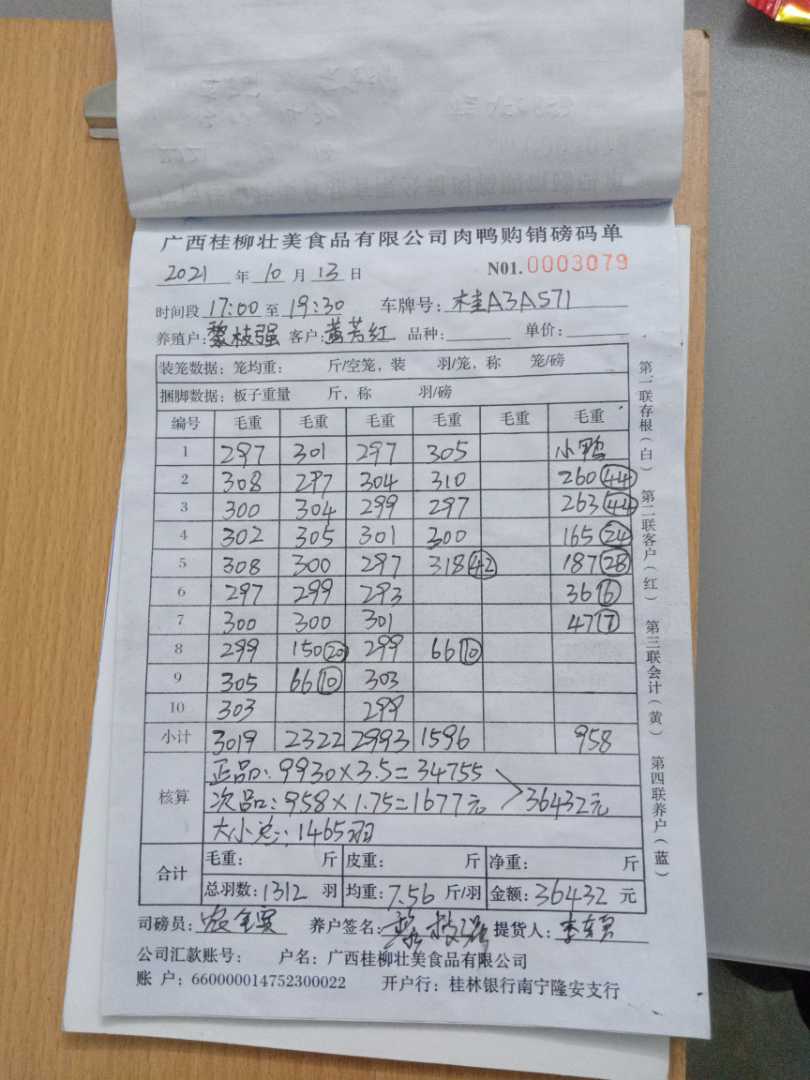 广西桂柳壮美食品有限公司肉鸭购销磅码单
2021 年 10 月 13 日 N01.0003079
时间段 17:00 至 19:30 车牌号: 桂A3A571
养殖户: 黎枝强 客户: 黄芳红 品种: 单价:
装笼数据: 笼均重: 斤/空笼, 装 羽/笼, 称 笼/磅
捆脚数据: 板子重量 斤, 称 羽/磅
编号 毛重 毛重 毛重 毛重 毛重 毛重
1 297 301 297 305 小鸭
2 308 297 304 310 260 44
3 300 304 299 297 263 44
4 302 305 301 300 165 24
5 308 300 297 318 42 187 28
6 297 299 293 36 6
7 300 300 301 47 7
8 299 150 20 299 66 10
9 305 66 10 303
10 303 299
小计 3019 2322 2993 1596 958
核算
正品: 9930×3.5=34755
次品: 958×1.75=1677元 36432元
大小总: 1465羽
合计
毛重: 斤 皮重: 斤 净重: 斤
总羽数: 1312 羽 均重: 7.56 斤/羽 金额: 36432 元
司磅员: 养户签名: 黎枝强 提货人:
公司汇款账号: 户名: 广西桂柳壮美食品有限公司
账 户: 660000014752300022 开户行: 桂林银行南宁隆安支行
第一联存根(白) 第二联客户(红) 第三联会计(黄) 第四联养户(蓝)